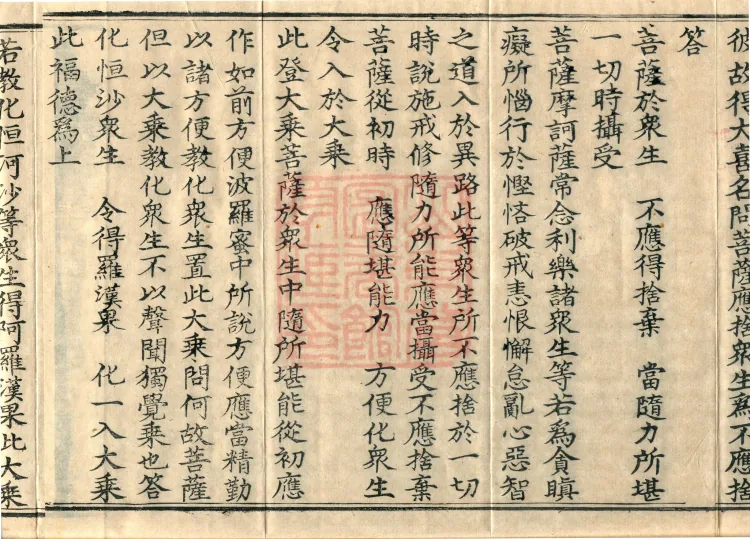 彼故得大喜名問菩薩應捨衆生爲不應捨
答
菩薩於衆生　不應得捨棄　當隨力所堪
一切時攝受
菩薩摩訶薩常念利樂諸衆生等若爲貪瞋
癡所惱行於慳悋破戒恚恨懈怠亂心惡智
之道入於異路此等衆生所不應捨於一切
時說施戒修隨力所能應當攝受不應捨棄
菩薩從初時　應隨堪能力　方便化衆生
令入於大乘
此登大乘菩薩於衆生中隨所堪能從初應
作如前方便波羅蜜中所說方便應當精勤
以諸方便教化衆生置此大乘問何故菩薩
但以大乘教化衆生不以聲聞獨覺乘也答
化恒沙衆生　令得羅漢果　化一入大乘
此福德爲上
若教化恒河沙等衆生得阿羅漢果比大乘